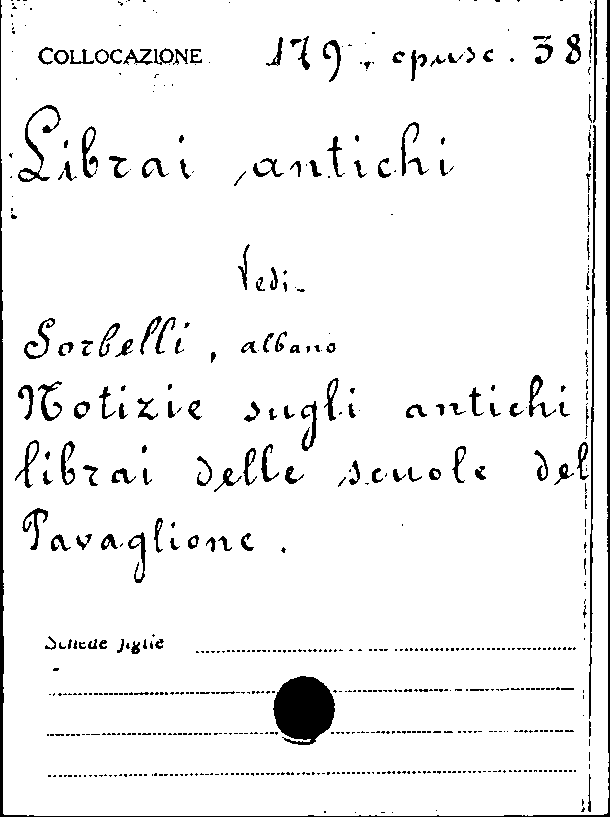 COLLOCAZIONE 179, opusc. 38
Librai antichi
Vedi
Sorbelli, albano
Notizie sugli antichi
librai delle scuole del
Pavaglione.
Schede figlie